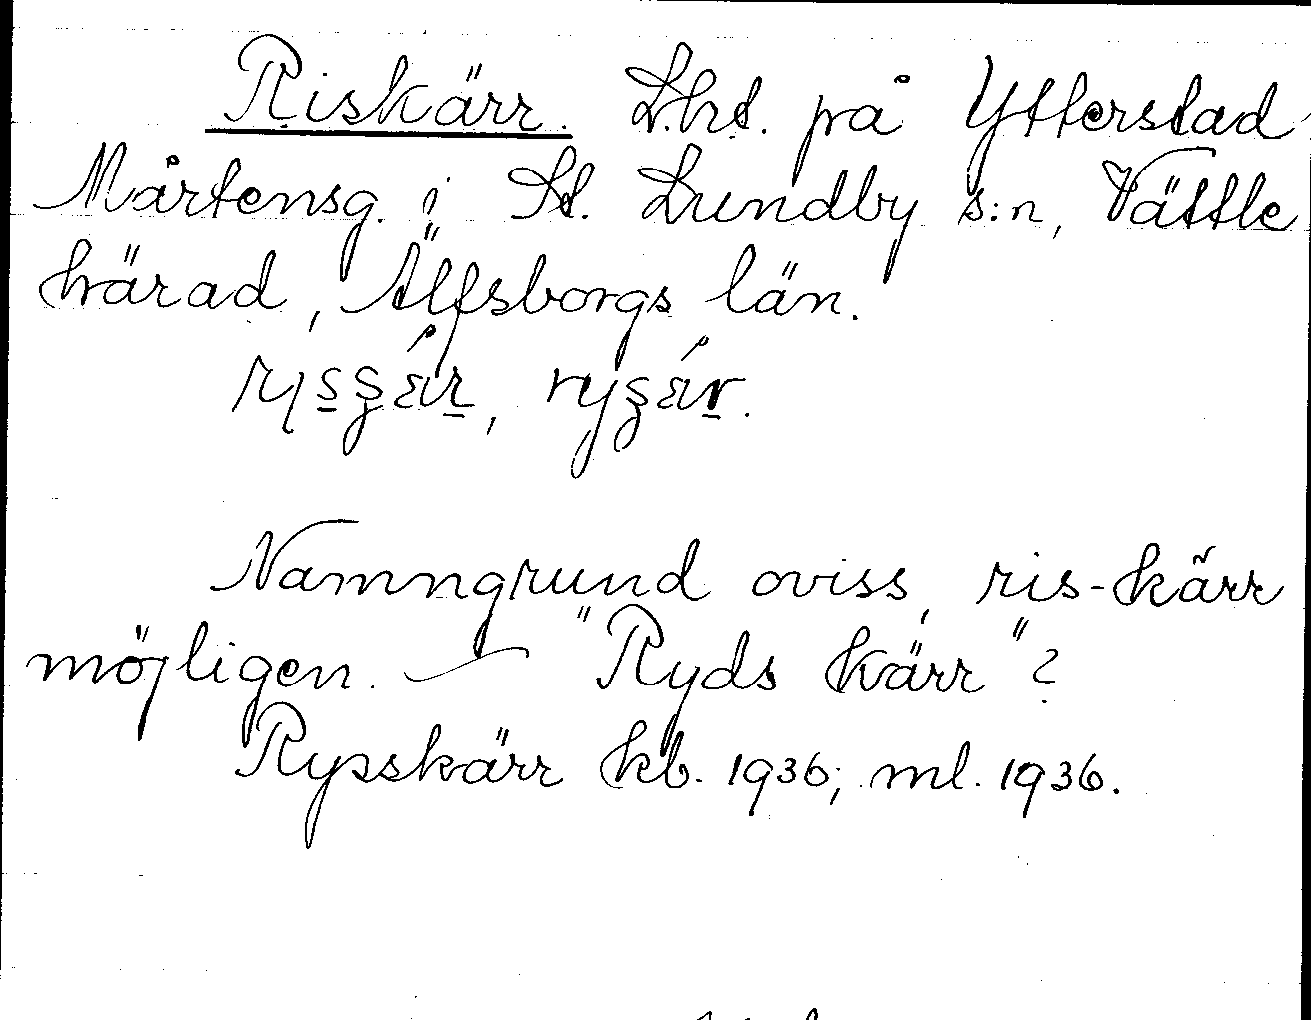 Riskärr. Lht. på Ytterstad
Mårtensg. i St. Lundby s:n, Vättle
härad, Älfsborgs län.
Namngrund oviss, ris-kärr
möjligen. — "Ryds kärr"?
Rysskärr kb. 1936; ml. 1936.